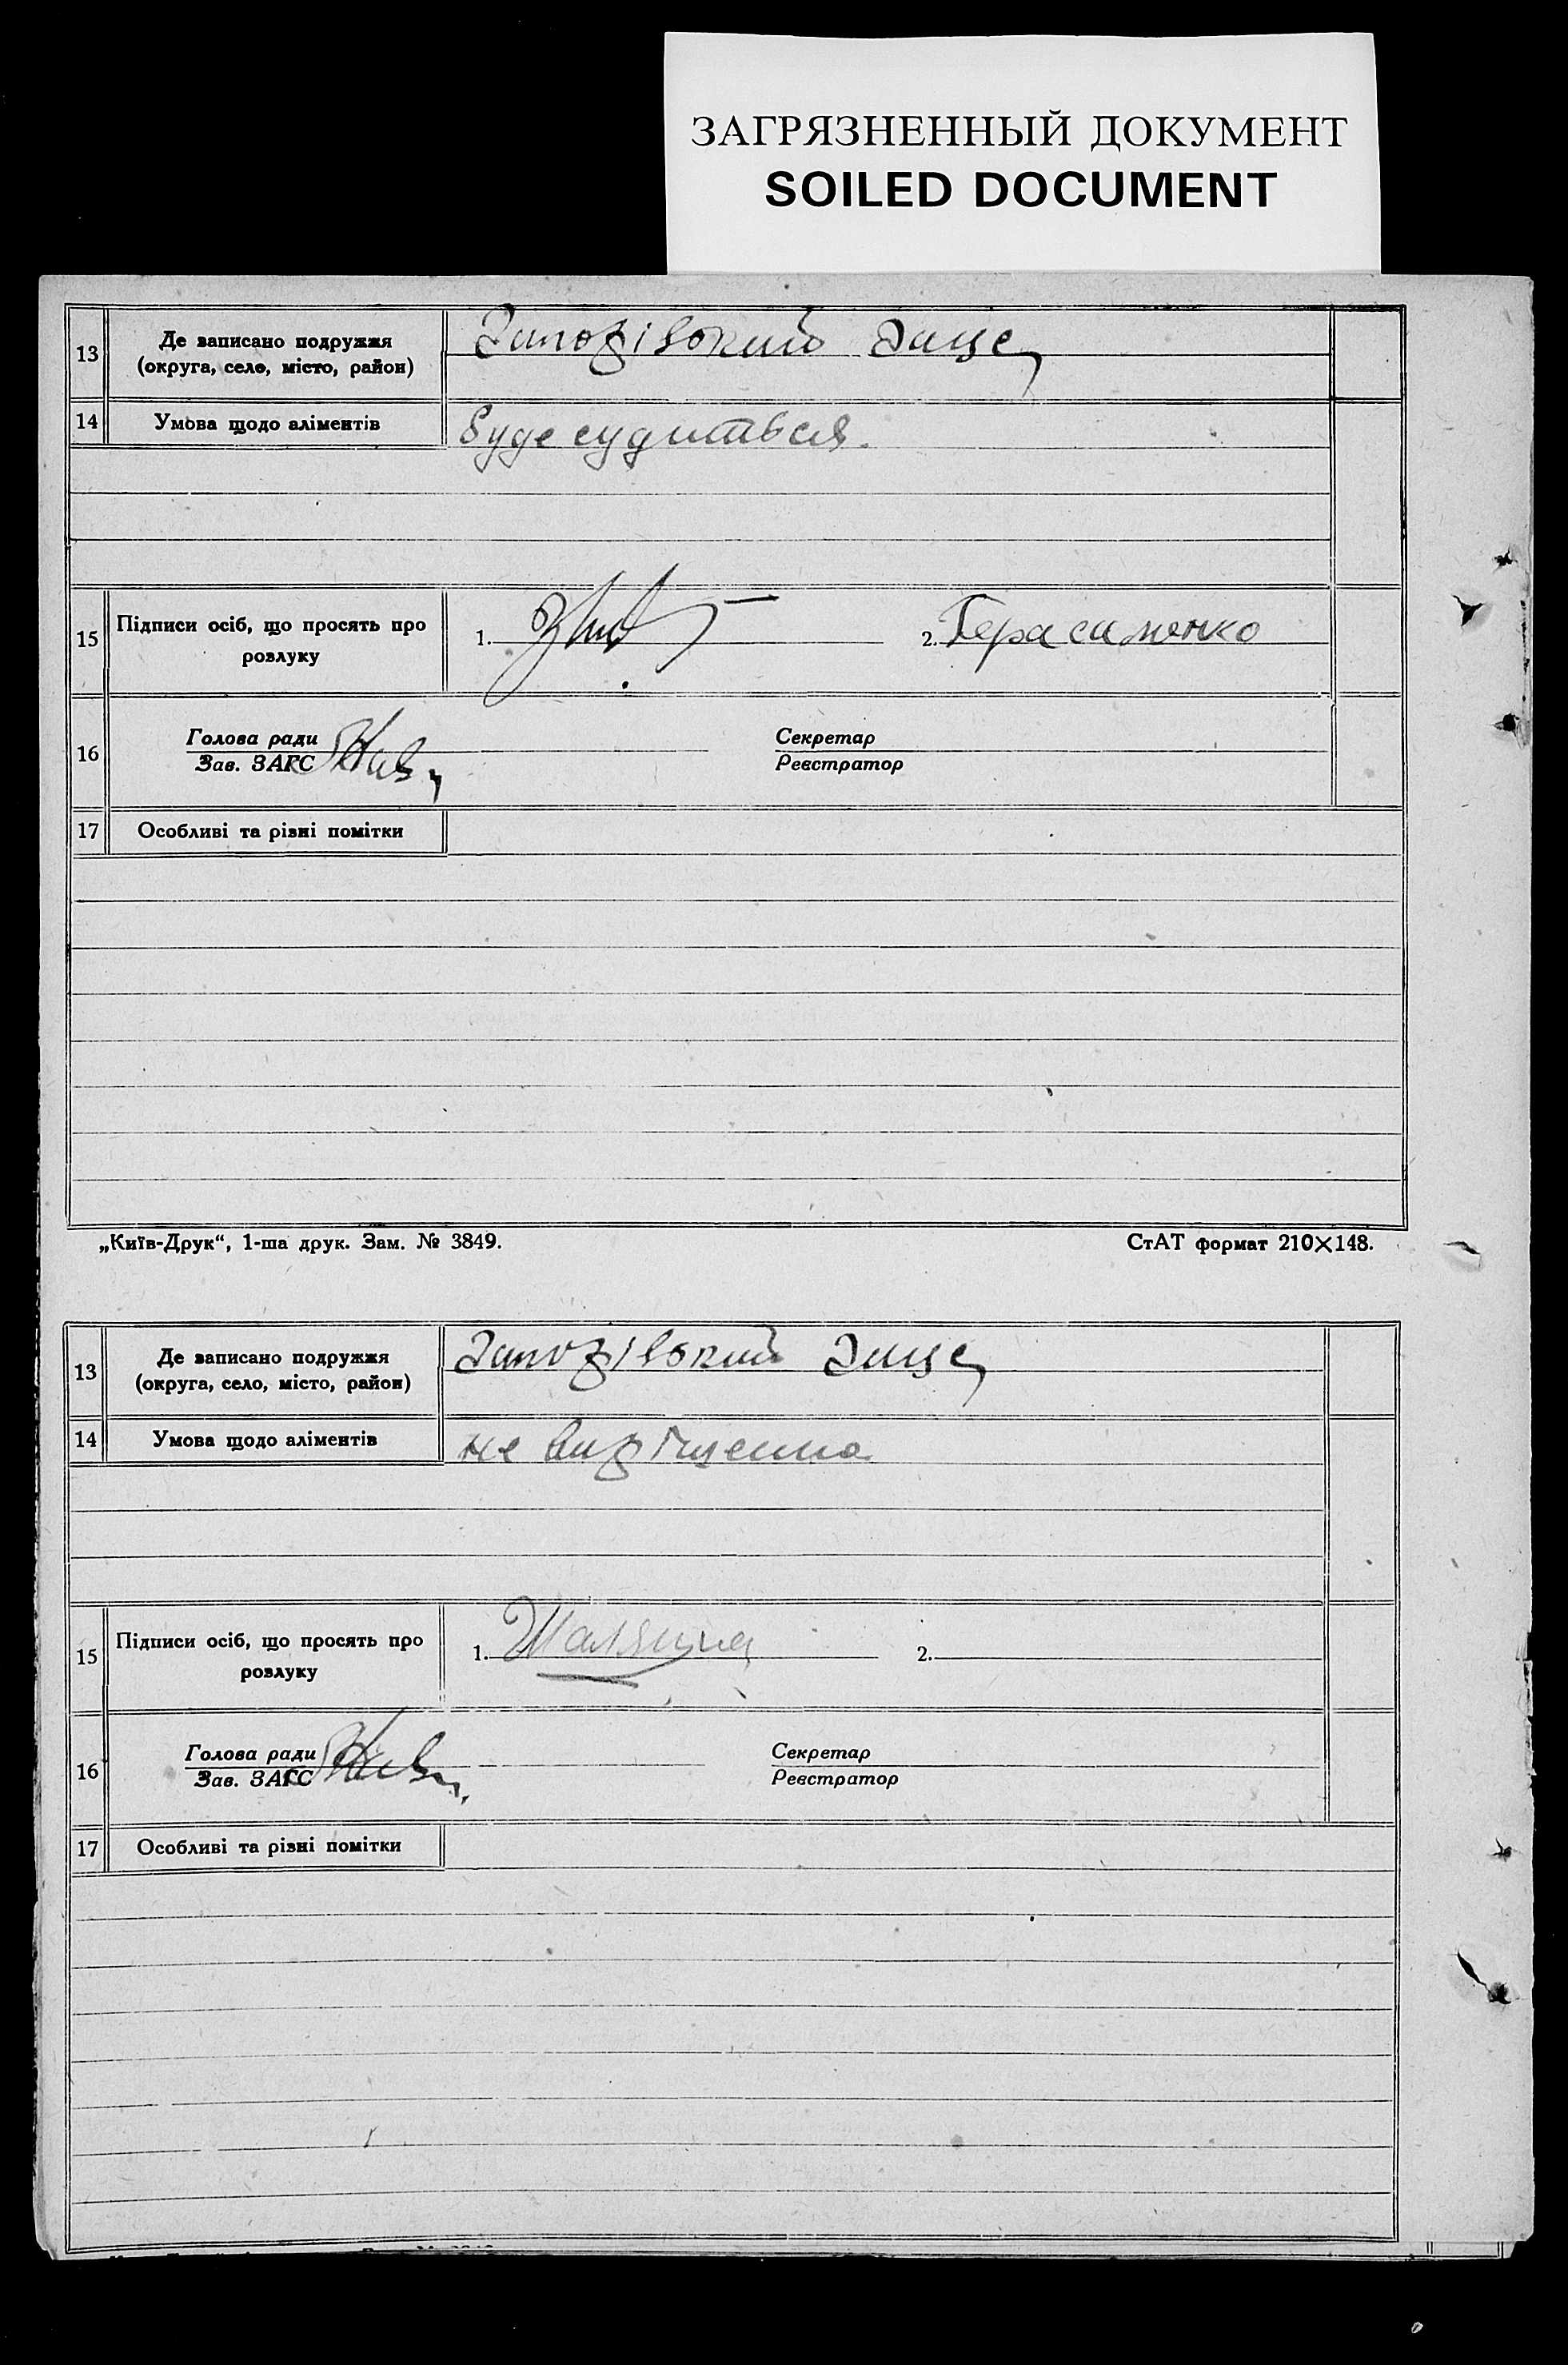 ЗАГРЯЗНЕННЫЙ ДОКУМЕНТ
SOILED DOCUMENT
13
Де записано подружжя
(округа, село, місто, район)
14
Умова щодо аліментів
буде судиться.
15
Підписи осіб, що просять про
розлуку
1.
2. Герасименко
16
Голова ради
Зав. ЗАГС
Секретар
Реєстратор
17
Особливі та різні помітки
„Київ-Друк“, 1-ша друк. Зам. № 3849.
СтАТ формат 210×148.
13
Де записано подружжя
(округа, село, місто, район)
14
Умова щодо аліментів
не
15
Підписи осіб, що просять про
розлуку
1.
2.
16
Голова ради
Зав. ЗАГС
Секретар
Реєстратор
17
Особливі та різні помітки